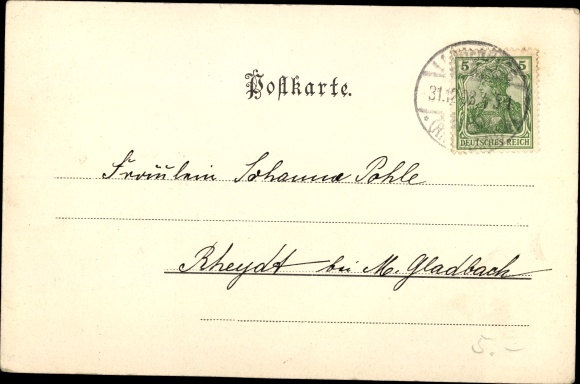 5 5
DEUTSCHES REICH
31.12.
Postkarte.
Fräulein Johanna Pohle
Rheydt bei M. Gladbach
5.-